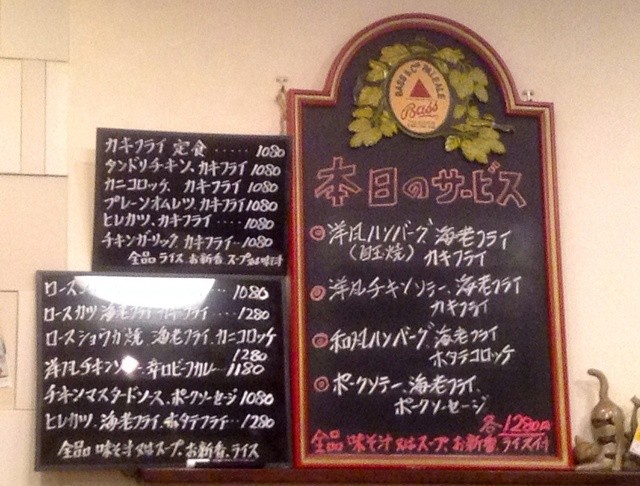 カキフライ 定食 ····· 1080
タンドリチキン、カキフライ 1080
カニコロッケ、カキフライ 1080
プレーンオムレツ、カキフライ 1080
ヒレカツ、カキフライ ···· 1080
チキンガーリック カキフライ·· 1080
全品 ライス お新香 スープ又は味汁
ロース 1080
ロースカツ 海老フライ カキフライ ·· 1280
ロースショウガ焼 海老フライ、カニコロッケ
1280
洋風チキンソテー、辛口ビーフカレー 1180
チキンマスタードソース、ポークソーセージ 1080
ヒレカツ、海老フライ、ホタテフライ·· 1280
全品 味そ汁 又はスープ、お新香、ライス
BASS & Co PALE ALE
Bass
本日のサービス
◎洋風ハンバーグ 海老フライ
(目玉焼) カキフライ
◎洋風チキンソテー、海老フライ
カキフライ
◎和風ハンバーグ 海老フライ
ホタテコロッケ
◎ポークソテー、海老フライ、
ポークソーセージ
各1280円
全品 味そ汁 又はスープ、お新香、ライス付